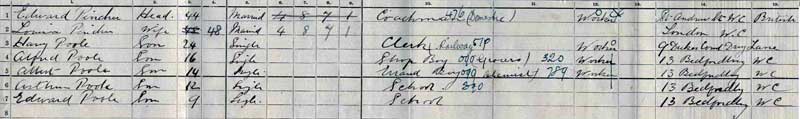 1 Edward Pincher Head 44 Married 4 8 7 1 Coachman (Domestic) Worker St Andrew St WC British
2 Louisa Pincher Wife 48 Married 4 8 7 1 London W.C
3 Harry Poole Son 24 Single Clerk (Railway) Worker 9 Dukes Court Drury Lane
4 Alfred Poole Son 16 Single Shop Boy 320 Worker 13 Bedfordbury WC
5 Albert Poole Son 14 Single Errand Boy (Chemist) 789 Worker 13 Bedfordbury WC
6 Arthur Poole Son 12 Single School 390 13 Bedfordbury WC
7 Edward Poole Son 9 Single School 13 Bedfordbury WC
8